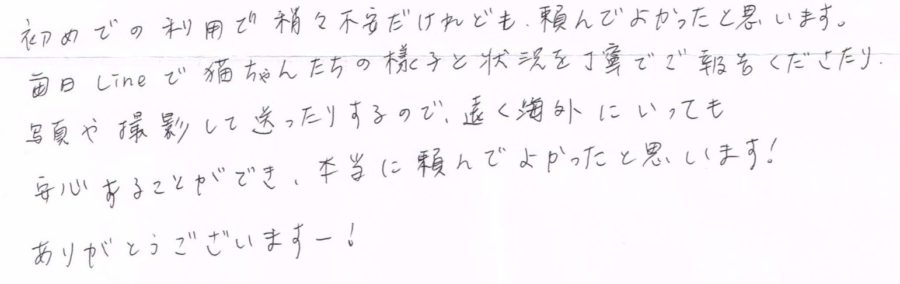 初めでの利用で稍々不安だけれども、頼んでよかったと思います。
毎日Lineで猫ちゃんたちの様子と状況を丁寧でご報告くださたり、
写真や撮影して送ったりするので、遠く海外にいっても
安心することができ、本当に頼んでよかったと思います!
ありがとうございますー!